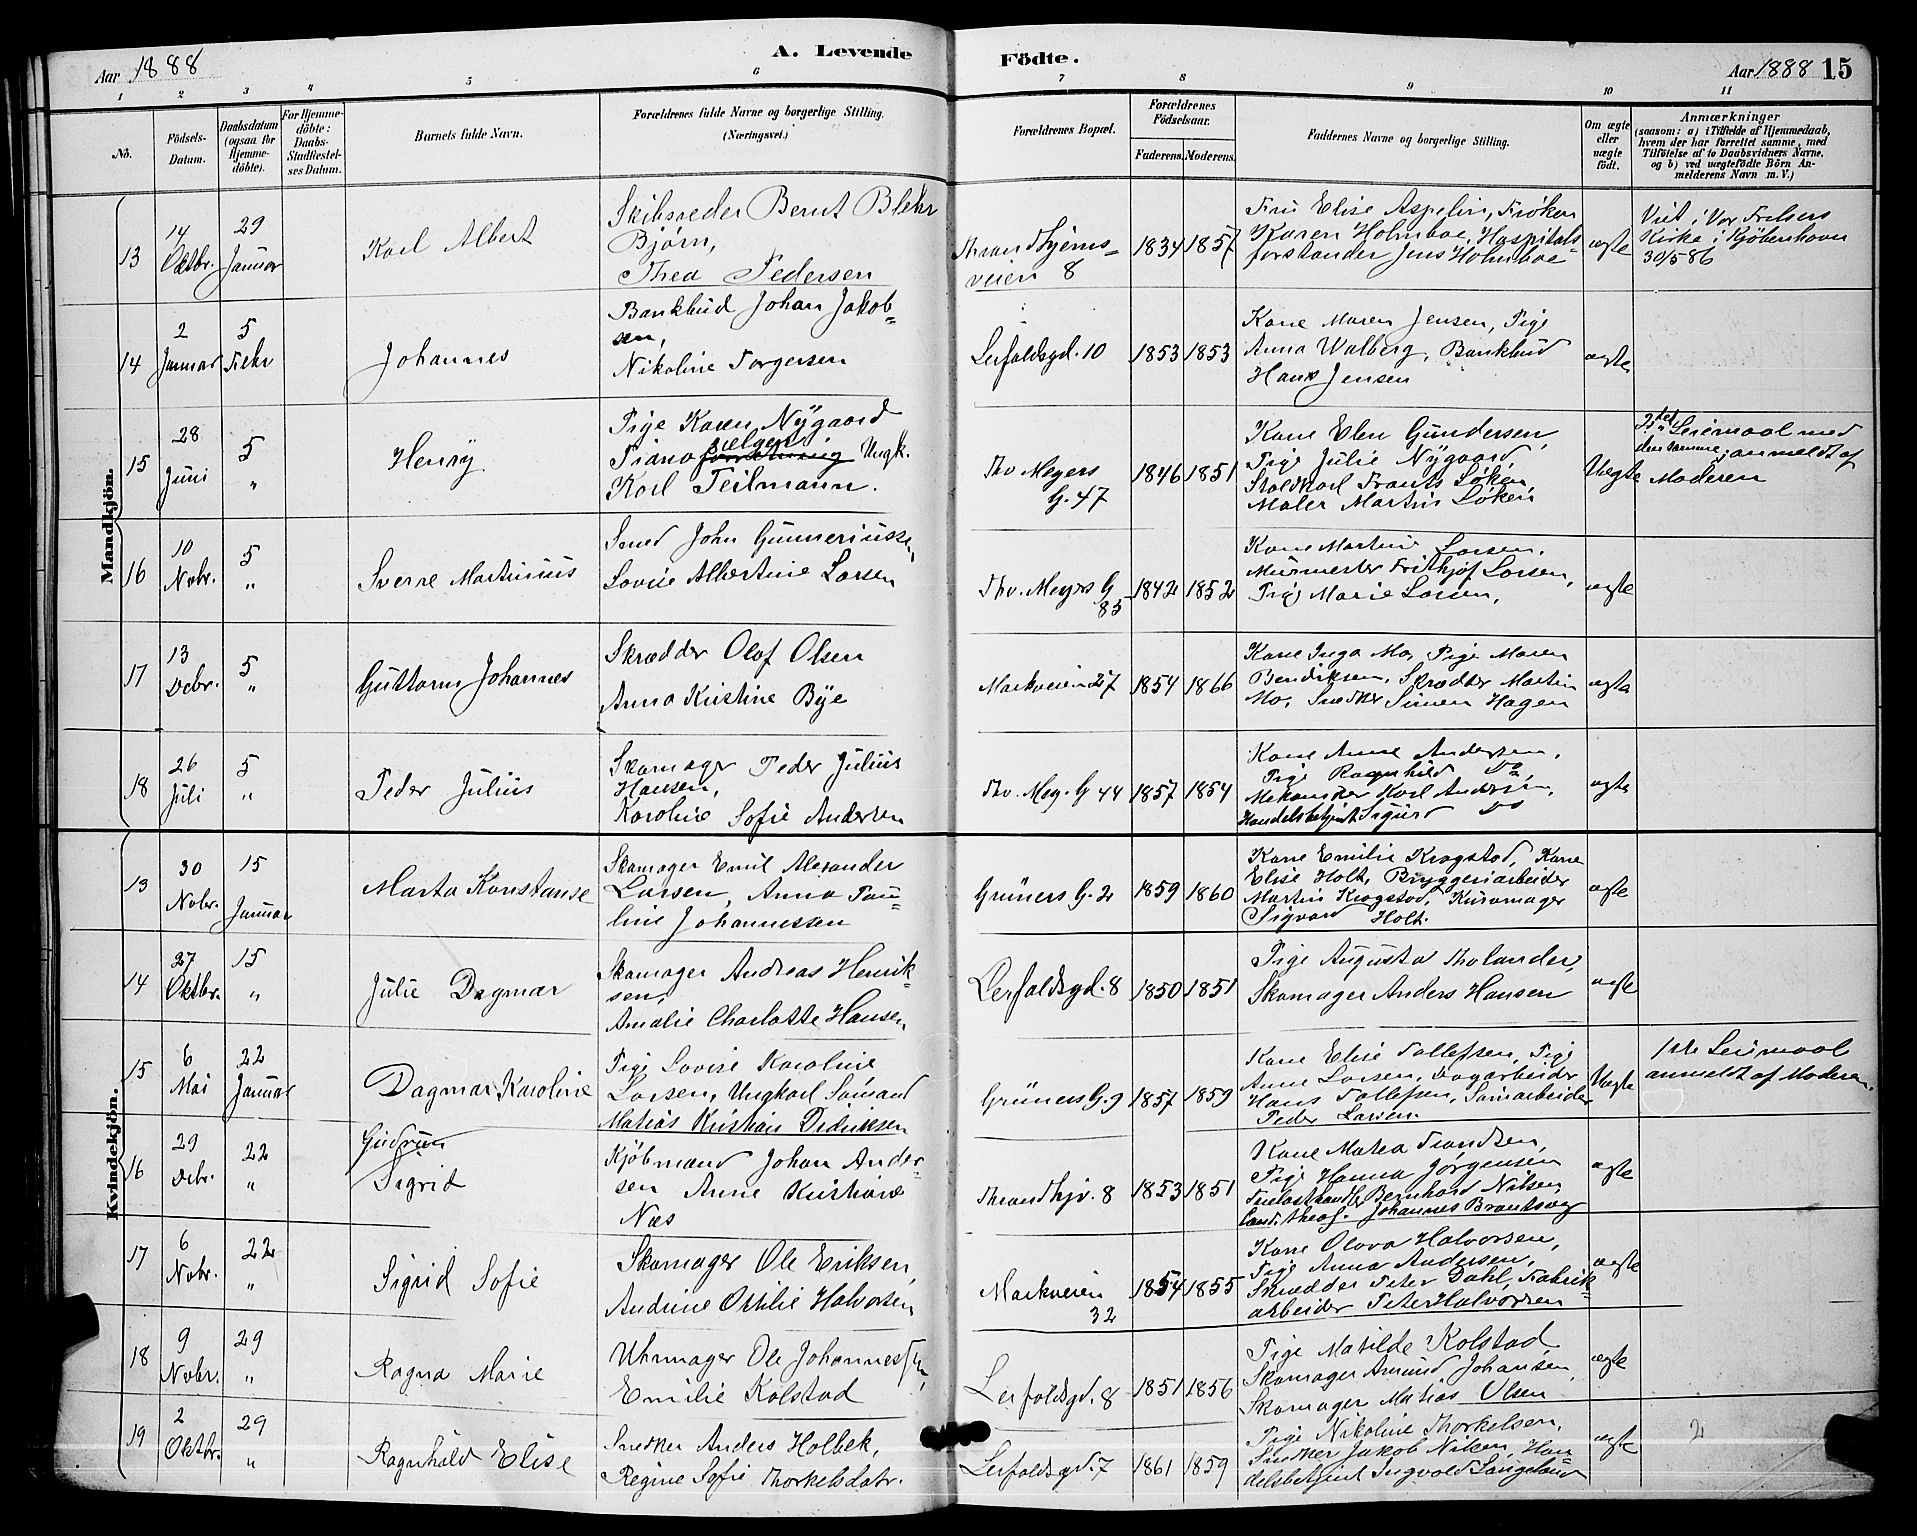 Aar 1888
A. Levende
Födte.
Aar 1888 15
1 2 3 4 5 6 7 8 9 10 11
No.
Födsels-
Datum.
Daabsdatum
(ogsaa for
Hjemme-
döbte).
For Hjemme-
döbte:
Daabs-
Stadfæstel-
ses Datum.
Barnets fulde Navn.
Forældrenes fulde Navne og borgerlige Stilling.
(Næringsvei.)
Forældrenes Bopæl.
Forældrenes
Födselsaar.
Faderens. Moderens.
Faddernes Navne og borgerlige Stilling.
Om ægte
eller
uægte
født.
Anmærkninger
(saasom: a) i Tilfælde af Hjemmedaab,
hvem der har forrettet samme, med
Tilföielse af to Daabsvidners Navne,
og b) ved uægtefödte Börn An-
melderens Navn m. V.)
Mandkjön.
13
14
Oktbr.
29
Januar
Karl Albert
Skibsreder Bernt Blehr
Bjørn,
Thea Pedersen
Thrandhjems-
veien 8
1834 1857
Fru Elise Aspelin, Frøken
Karen Holmboe, Hospitals-
forstander Jens Holmboe
ægte
Viet i Vor Frelsers
Kirke i Kjøbenhavn
30/5 86
14
2
Januar
5
Febr
Johannes
Bankbud Johan Jakob-
sen,
Nikoline Torgersen
Lerfaldsgd. 10
1853 1853
Kone Maren Jensen, Pige
Anna Walberg, Bankbud
Hans Jensen
ægte
15
28
Juni
5
"
Henry
Pige Karen Nygaard
Pianosælger Ungk.
Karl Teilmann.
Thv. Meyers
G. 47
1846 1851
Kone Elen Gundersen,
Pige Julie Nygaard,
Staldkarl Frants Løken,
Maler Martin Løken
Uægte
Leiemaal med
den samme, anmeldt af
Moderen
16
10
Nobr.
5
"
Sverre Martinius
Smed John Gunneriussen
Lovise Albertine Larsen
Thv. Meyers G
85
1842 1852
Kone Martine Larsen,
Murmester Frithjof Larsen,
Pige Marie Larsen,
ægte
17
13
Debr.
5
"
Guttorm Johannes
Skrædder Olaf Olsen
Anna Kristine Bye
Markveien 27
1854 1866
Kone Inga Mo, Pige Maren
Bendriksen, Skrædder Martin
Mo, Snedker Simen Hagen
ægte
18
26
Juli
5
"
Peder Julius
Skomager Peder Julius
Hansen,
Karoline Sofie Andersen
Thv. Mey. G 44
1857 1854
Kone Anne Andersen,
Pige Ragnhild Do,
Mekaniker Karl Andersen,
Handelsbetjent Sigurd Do
ægte
Kvindekjön.
13
30
Nobr.
15
Januar
Marta Konstanse
Skomager Emil Alexander
Larsen, Anna Pau-
line Johannessen
Grüners G. 2
1859 1860
Kone Emilie Krogstad, Kone
Elise Holt, Bryggeriarbeider
Martin Krogstad, Kurvmager
Sigvard Holt.
ægte
14
27
Oktbr.
15
"
Julie Dagmar
Skomager Andreas Henrik-
sen,
Amalie Charlotte Hansen
Lerfaldsgd. 8
1850 1851
Pige Augusta Tholander,
Skomager Anders Hansen
ægte
15
6
Mai
22
Januar
Dagmar Karoline
Pige Lovise Karoline
Larsen, Ungkarl Sømand
Matias Kristian Didriksen
Grüners G. 9
1857 1859
Kone Elise Tollefsen, Pige
Anne Larsen, Dagarbeider
Hans Tollefsen, Sømarbeider
Peder Larsen.
Uægte
1ste Leiemaal
anmeldt af Moderen
16
29
Debr.
22
"
Gudrun
Sigrid
Kjøbmand Johan Ander-
sen Anne Kristiane
Næs
Thrandhjv. 8
1853 1851
Kone Matea Trandsen,
Pige Hanna Jørgensen
Bernhard Nilsen
Cand. theol. Johannes Brantsæg
ægte
17
6
Nobr.
22
"
Sigrid Sofie
Skomager Ole Eriksen,
Andrine Otilie Halvorsen
Markveien
32
1854 1855
Kone Olava Halvorsen,
Pige Anna Andersen,
Skrædder Peter Dahl, Fabrik-
arbeider Peter Halvorsen
ægte
18
9
Nobr.
29
"
Ragna Marie
Uhrmager Ole Johannessen,
Emilie Kolstad
Lerfaldsgd. 8
1851 1856
Pige Matilde Kolstad,
Skomager Amund Johansen,
Skomager Matias Olsen
ægte
19
2
Oktbr.
29
"
Ragnhild Elise
Snedker Anders Holbek,
Regine Sofie Thorkelsdatr.
Lerfaldsgd. 7
1861 1859
Pige Nikoline Thorkelsen,
Snedker Jakob Nilsen, Han
delsbetjent Ingvald Langeland
ægte
2